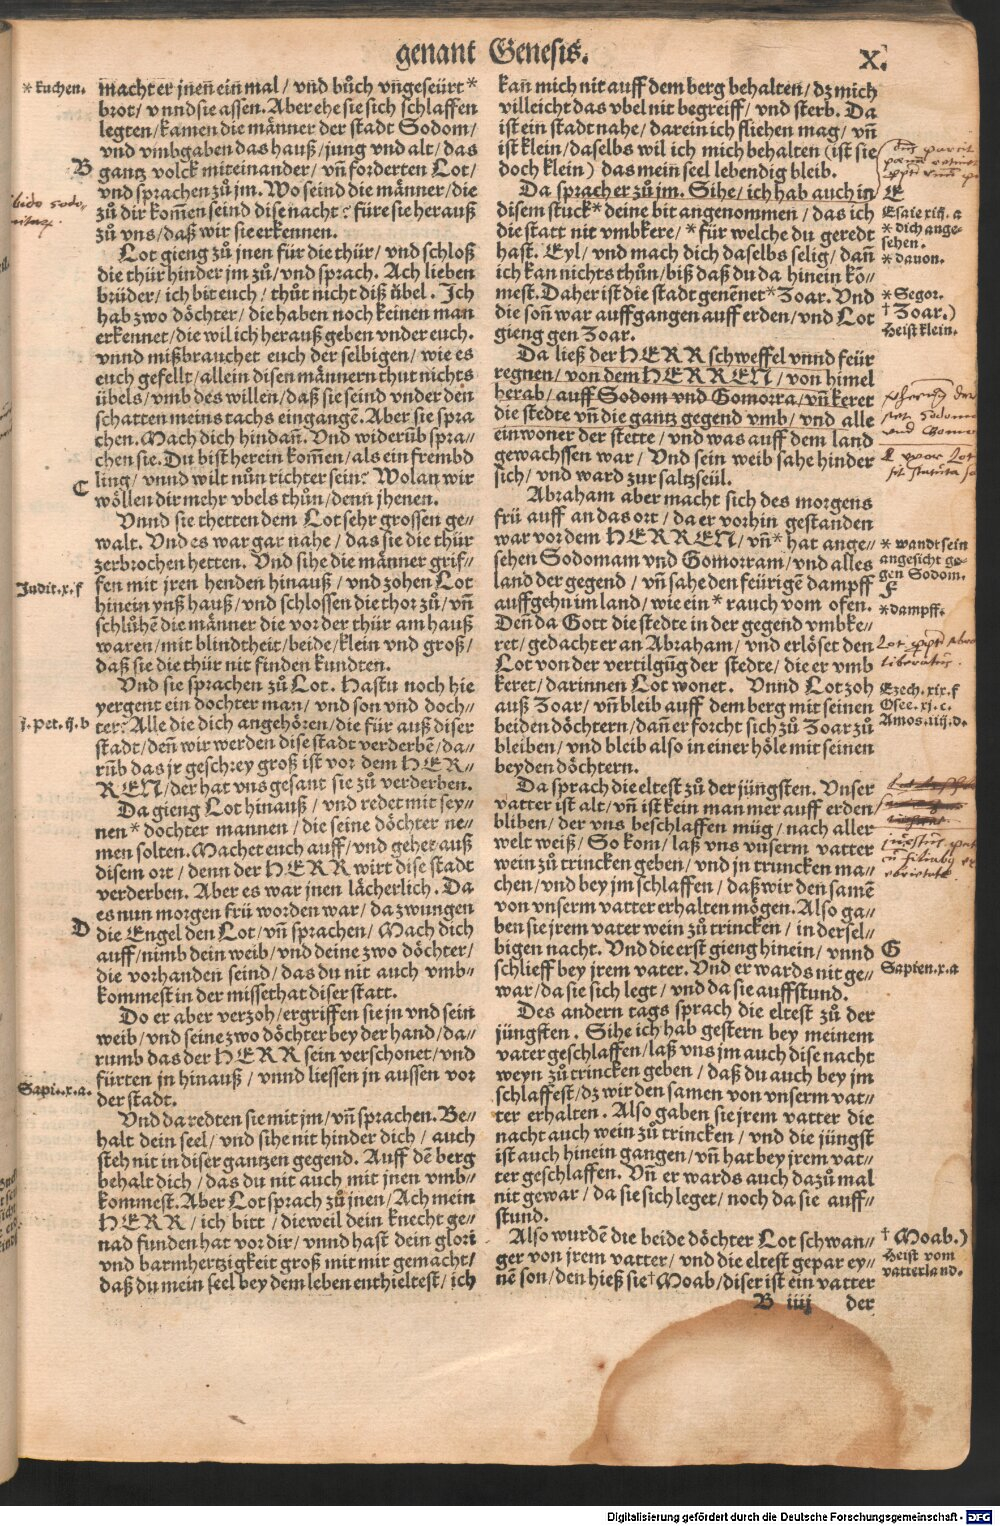 genant Genesis.
X.
* kuchen.
macht er jnen̄ ein mal / vnd bůch vngeseürt *
brot / vnnd sie assen. Aber ehe sie sich schlaffen
legten / kamen die männer der stadt Sodom /
vnd vmbgaben das hauß / jung vnd alt / das
B
gantz volck miteinander / vn̄ forderten Lot /
vnd sprachen zů jm. Wo seind die männer / die
zů dir kom̄en seind dise nacht? füre sie herauß
zů vns / daß wir sie erkennen.
Lot gieng zů jnen für die thür / vnd schloß
die thür hinder jm zů / vnd sprach. Ach lieben
brüder / ich bit euch / thůt nicht diß übel. Ich
hab zwo döchter / die haben noch keinen man
erkennet / die wil ich herauß geben vnder euch.
vnnd mißbrauchet euch der selbigen / wie es
euch gefellt / allein disen männern thut nichts
übels / vmb des willen / daß sie seind vnder den
schatten meins tachs eingangē. Aber sie spra
chen. Mach dich hindan̄. Vnd widerüb spra⸗
chen sie. Du bist herein kom̄en / als ein frembd
C
ling / vnnd wilt nůn richter sein? Wolan wir
wöllen dir mehr vbels thůn / denn jhenen.
Vnnd sie thetten dem Lot sehr grossen ge⸗
walt. Vnd es war gar nahe / das sie die thür
zerbrochen hetten. Vnd sihe die männer grif⸗
Judit.x.f
fen mit jren henden hinauß / vnd zohen Lot
hinein ynß hauß / vnd schlossen die thor zů / vn̄
schlůhē die männer die vor der thür am hauß
waren / mit blindtheit / beide / klein vnd groß /
daß sie die thür nit finden kundten.
Vnd sie sprachen zů Lot. Hastu noch hie
yergent ein dochter man / vnd son vnd doch⸗
ij. pet. ij. b
ter? Alle die dich angehören / die für auß diser
stadt / den̄ wir werden dise stadt verderbē / da⸗
rüb das jr geschrey groß ist vor dem HER⸗
REN / der hat vns gesant sie zů verderben.
Da gieng Lot hinauß / vnd redet mit sey⸗
nen * dochter mannen / die seine döchter ne⸗
men solten. Machet euch auff / vnd gehet auß
disem ort / denn der HERR wirt dise stadt
verderben. Aber es war jnen lächerlich. Da
es nun morgen frü worden war / da zwungen
D
die Engel den Lot / vn̄ sprachen / Mach dich
auff / nimb dein weib / vnd deine zwo döchter /
die vorhanden seind / das du nit auch vmb⸗
kommest in der missethat diser statt.
Do er aber verzoh / ergriffen sie jn vnd sein
weib / vnd seine zwo döchter bey der hand / da⸗
rumb das der HERR sein verschonet / vnd
fürten jn hinauß / vnnd liessen jn aussen vor
Sapi.x.a.
der stadt.
Vnd da redten sie mit jm / vn̄ sprachen. Be⸗
halt dein seel / vnd sihe nit hinder dich / auch
steh nit in diser gantzen gegend. Auff dē berg
behalt dich / das du nit auch mit jnen vmb⸗
kommest. Aber Lot sprach zů jnen / Ach mein
HERR / ich bitt / dieweil dein knecht ge⸗
nad funden hat vor dir / vnnd hast dein glori
vnd barmhertzigkeit groß mit mir gemacht /
daß du mein seel bey dem leben enthieltest / ich
kan̄ mich nit auff dem berg behalten / dz mich
villeicht das vbel nit begreiff / vnd sterb. Da
ist ein stadt nahe / darein ich fliehen mag / vn̄
ist klein / daselbs wil ich mich behalten (ist sie
doch klein) das mein seel lebendig bleib.
Da sprach er zů jm. Sihe / ich hab auch in
E
disem stuck * deine bit angenommen / das ich
Esaie xiij. a
die statt nit vmbkere / * für welche du geredt
* dich ange⸗
sehen.
hast. Eyl / vnd mach dich daselbs selig / dan̄
* dauon.
ich kan nichts thůn / biß daß du da hinein kō⸗
mest. Daher ist die stadt genēnet * Zoar. Vnd
* Segor.
die son̄ war auffgangen auff erden / vnd Lot
† Zoar.)
gieng gen Zoar.
Heist klein.
Da ließ der HERR schweffel vnnd feür
regnen / von dem HERREN / von himel
herab / auff Sodom vnd Gomorra / vn̄ kerer
die stedte vn̄ die gantz gegend vmb / vnd alle
einwoner der stette / vnd was auff dem land
gewachssen war / Vnd sein weib sahe hinder
sich / vnd ward zur saltzseül.
Abraham aber macht sich des morgens
frü auff an das ort / da er vorhin gestanden
war vor dem HERREN / vn̄ * hat ange⸗
* wandt sein
sehen Sodomam vnd Gomorram / vnd alles
angesicht ge⸗
land der gegend / vn̄ sahe den feürigē dampff
gen Sodom.
F
auffgehn im land / wie ein * rauch vom ofen.
* dampff.
Den̄ da Gott die stedte in der gegend vmbke⸗
ret / gedacht er an Abraham / vnd erlöset den
Lot von der vertilgūg der stedte / die er vmb
keret / darinnen Lot wonet. Vnnd Lot zoh
Ezech. xix. f
auß Zoar / vn̄ bleib auff dem berg mit seinen
Osee. xj. c.
beiden döchtern / dan̄ er forcht sich zů Zoar zů
Amos. iiij. d.
bleiben / vnd bleib also in einer höle mit seinen
beyden döchtern.
Da sprach die eltest zů der jüngsten. Vnser
vatter ist alt / vn̄ ist kein man mer auff erden
bliben / der vns beschlaffen müg / nach aller
welt weiß / So kom / laß vns vnserm vatter
wein zů trincken geben / vnd jn truncken ma⸗
chen / vnd bey jm schlaffen / daß wir den samē
von vnserm vatter erhalten mögen. Also ga⸗
ben sie jrem vater wein zů trincken / in dersel⸗
bigen nacht. Vnd die erst gieng hinein / vnnd
G
schlieff bey jrem vater. Vnd er wards nit ge⸗
Sapien.x.a
war / da sie sich legt / vnd da sie auffstund.
Des andern tags sprach die eltest zů der
jüngsten. Sihe ich hab gestern bey meinem
vater geschlaffen / laß vns jm auch dise nacht
weyn zů trincken geben / daß du auch bey jm
schlaffest / dz wir den samen von vnserm vat⸗
ter erhalten. Also gaben sie jrem vatter die
nacht auch wein zů trincken / vnd die jüngst
ist auch hinein gangen / vn̄ hat bey jrem vat⸗
ter geschlaffen. Vn̄ er wards auch dazů mal
nit gewar / da sie sich leget / noch da sie auff⸗
stund.
Also wurdē die beide döchter Lot schwan⸗
† Moab.)
ger von jrem vatter / vnd die eltest gepar ey⸗
Heist vom
nē son / den hieß sie † Moab / diser ist ein vatter
vatterland.
B iiij
der
Digitalisierung gefördert durch die Deutsche Forschungsgemeinschaft - DFG